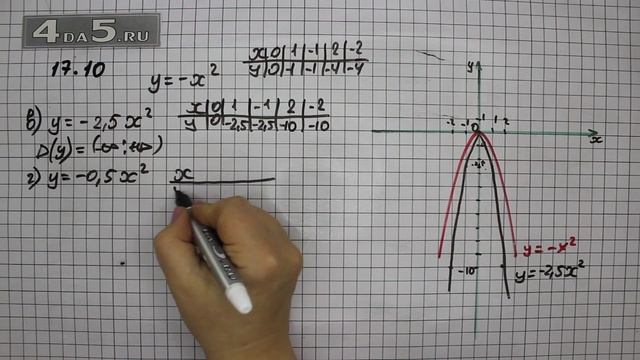 4DA5.RU
17.10
y = -x²
x 0 1 -1 2 -2
y 0 -1 -1 -4 -4
в) y = -2,5x²
x 0 1 -1 2 -2
y 0 -2,5 -2,5 -10 -10
D(y) = (-∞; +∞)
г) y = -0,5x²
x
y
-2 -1 0 1 2
x
-10
y = -x²
y = -2,5x²